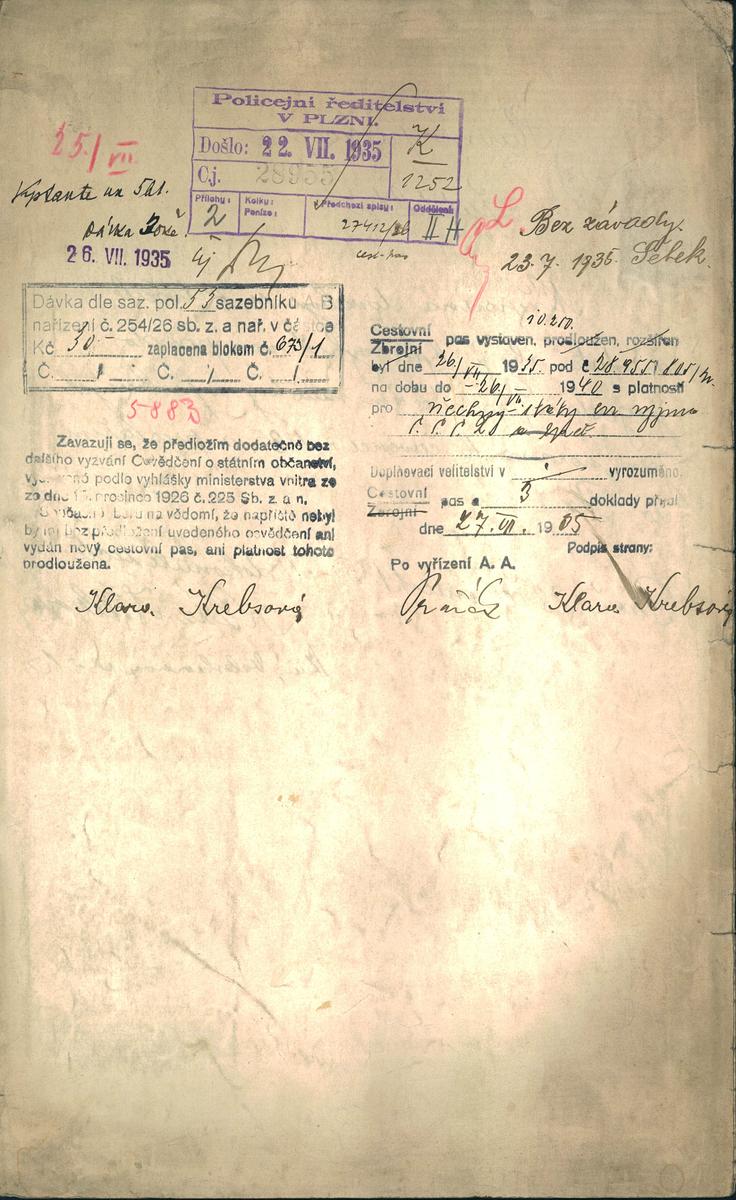 Policejní ředitelství
V PLZNI.
Došlo: 22. VII. 1935
K
1252
Čj. 28955
Přílohy: 2
Kolky:
Peníze:
Předchozí spisy:
27412/26
cest. pas
Oddělení: II H
25./VII.
dávka 30 Kč
26. VII. 1935
Bez závady.
23.7. 1935 Šebek.
Dávka dle saz. pol. 53 sazebníku B
nařízení č. 254/26 sb. z. a nař. v částce
Kč 30.- zaplacena blokem č. 673/1
Č. / Č. / Č. /
5883
Zavazuji se, že předložím dodatečně bez
dalšího vyzvání Osvědčení o státním občanství,
vydané podle vyhlášky ministerstva vnitra ze
ze dne prosince 1926 č. 225 Sb. z. a n.
Současně beru na vědomí, že napříště nebyl
by mi bez předložení uvedeného osvědčení ani
vydán nový cestovní pas, ani platnost tohoto
prodloužena.
Klara Krebsová
10.250.
Cestovní
Zbrojní
pas vystaven, prodloužen, rozšířen
byl dne 26/VII. 1935 pod č 28.955
na dobu do 26/VII. 1940 s platností
pro všechny státy
Doplňovací velitelství v vyrozuměno.
Cestovní
Zbrojní
pas a 3 doklady přijal
dne 27.VII. 1935
Podpis strany:
Po vyřízení A. A.
Klara Krebsová